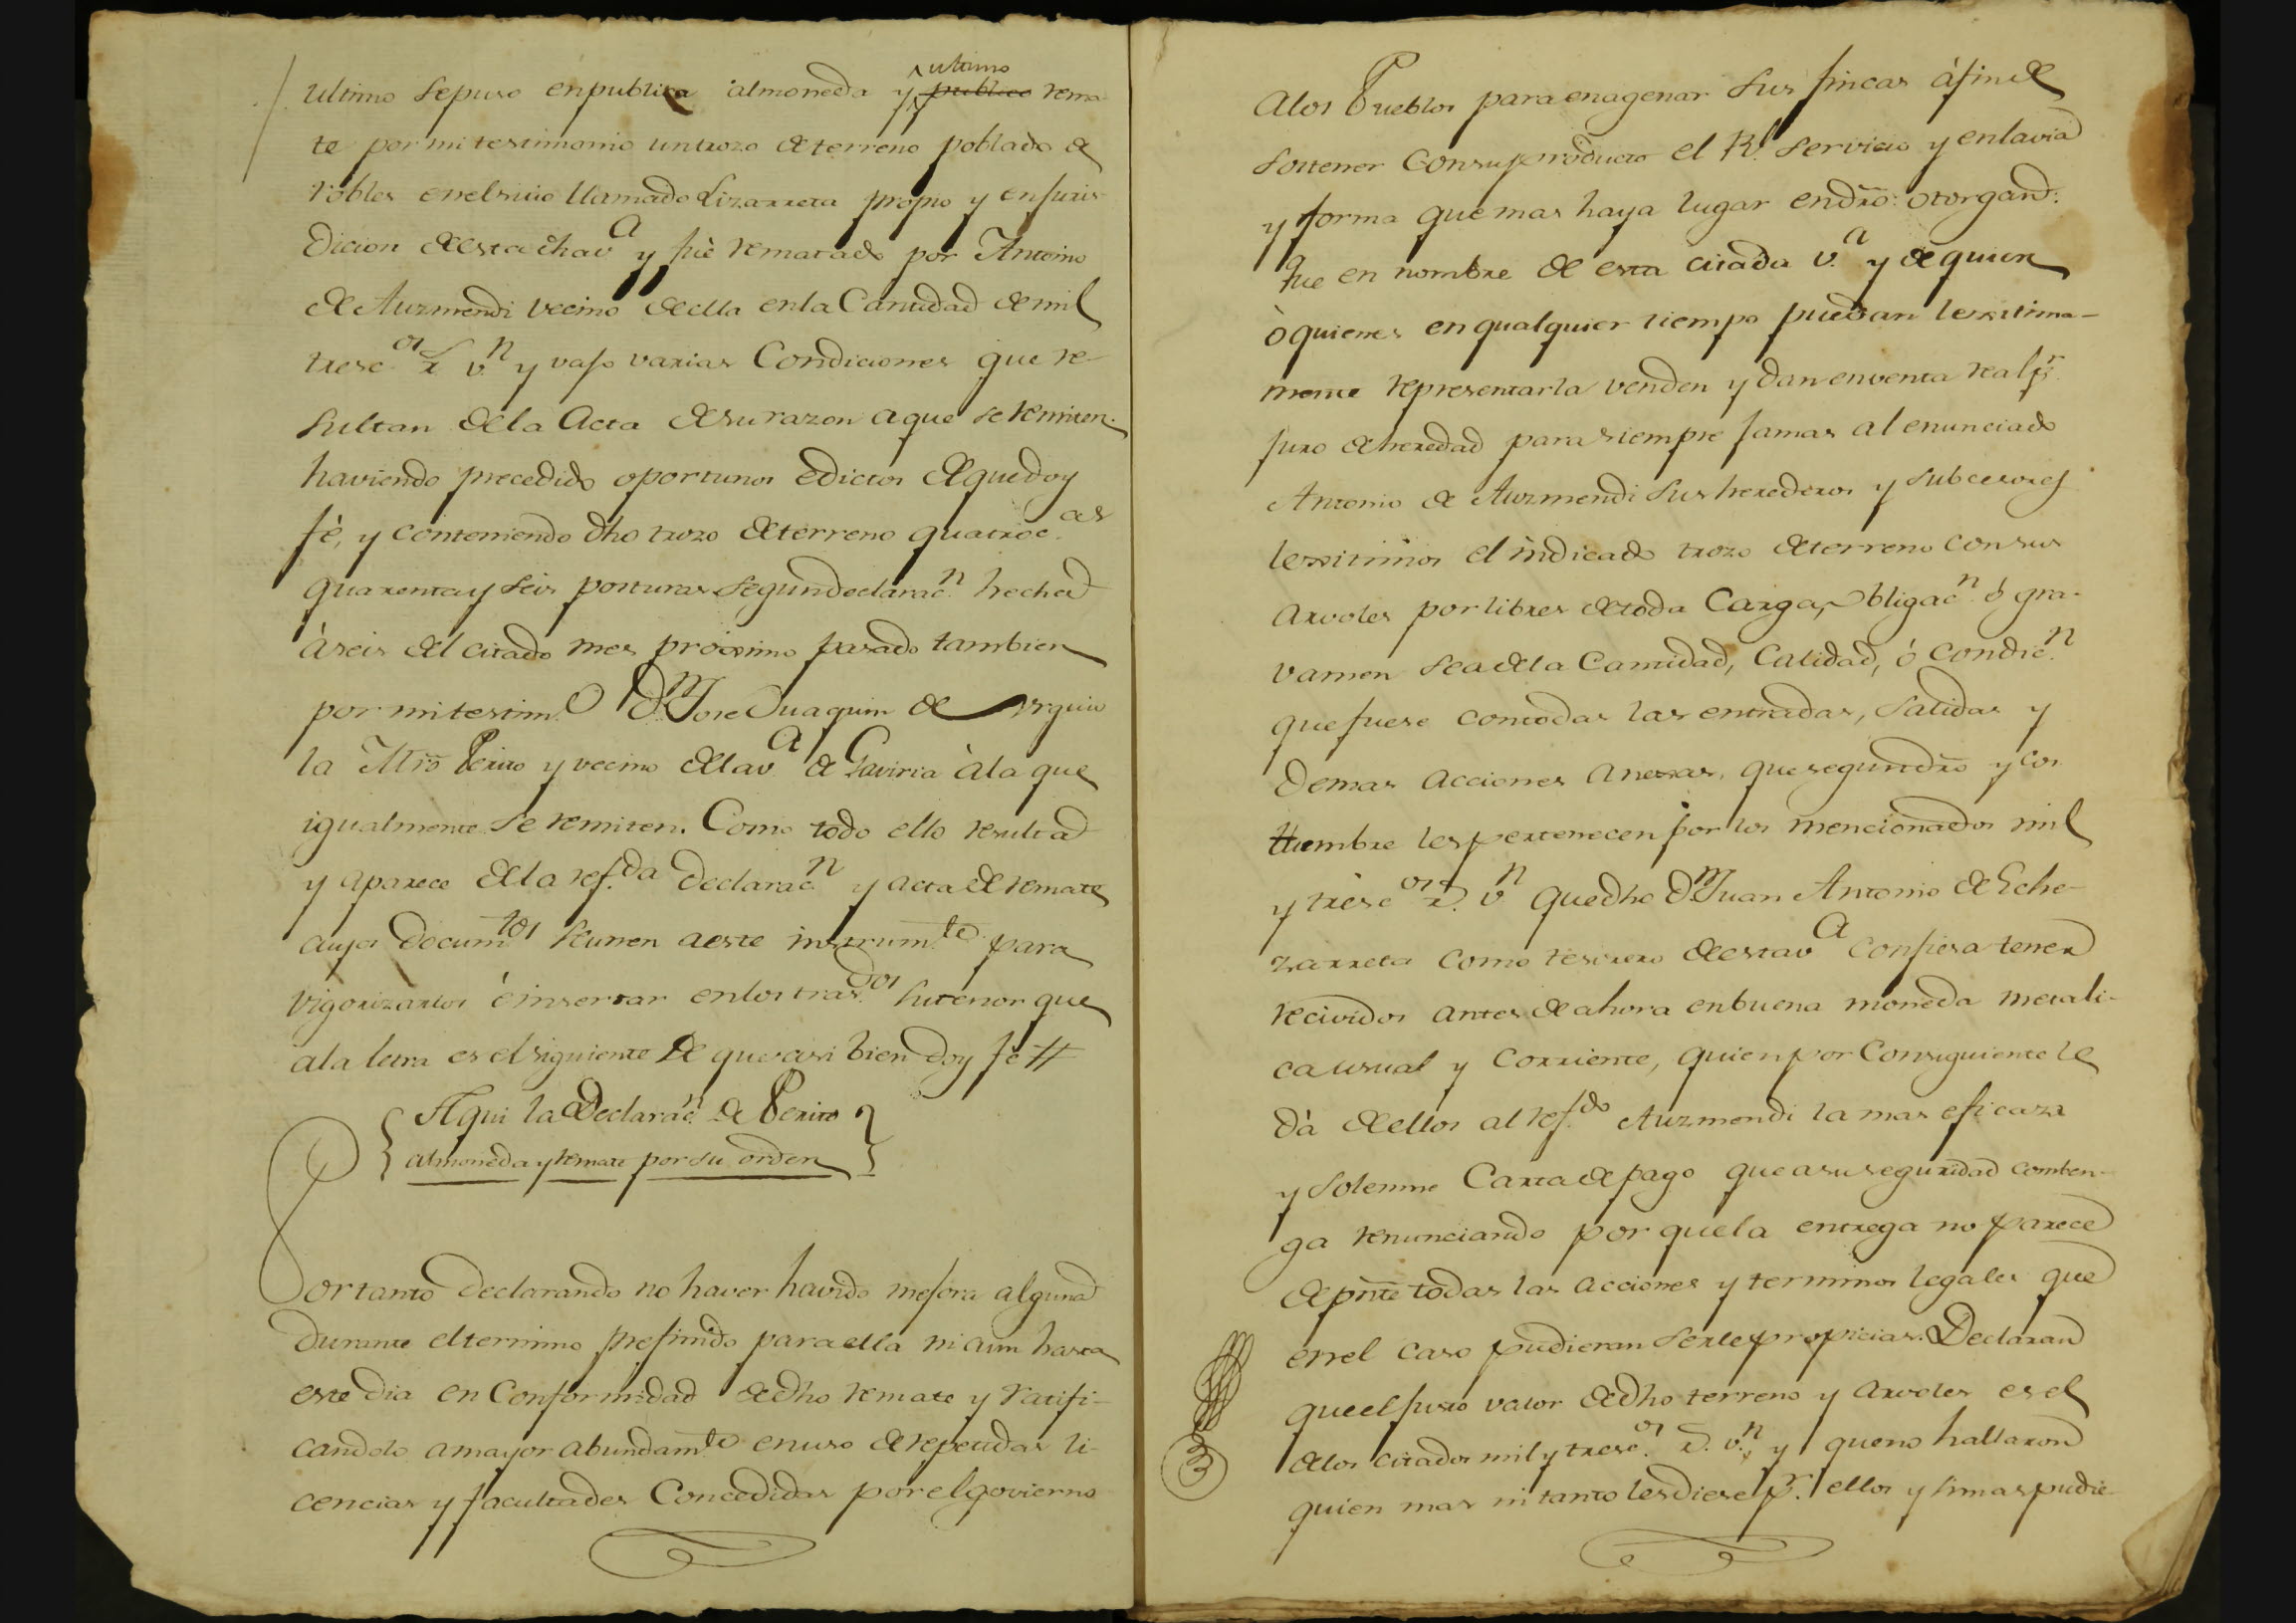 ultimo se puso en publica almoneda y ultimo publico rema-
te por mi testimonio un trozo de terreno poblado de
robles en el sitio llamado Lizarreta propio y en juris-
dicion de esta dha v.a y fue rematado por Antonio
de Auzmendi vecino de ella en la Cantidad de mil
tresc.os r.s v.n y vajo varias Condiciones que re-
sultan de la Acta de su razon a que se remiten.
haviendo precedido oportunos edictos de que doy
fè, y conteniendo dho trozo de terreno quatroc.as
quarenta y seis posturas segun declarac.n hecha
à seis del citado mes proximo pasado tambien
por mi testim.o D.n Jose Juaquin de Urguio
la Mro Perito y vecino de la v.a de Gaviria à la que
igualmente se remiten. Como todo ello resulta
y aparece de la ref.da declarac.n y acta de remate
cuyos docum.tos reunen a este instrum.to para
vigorizarlos è insertar en los tras.dos su tenor que
a la letra es el siguiente de que asi bien doy fè #
Aqui la Declarac.n de Perito
almoneda y remate por su orden
Por tanto declarando no haver havido mejora alguna
durante el termino prefinido para ella ni aun hasta
este dia en Conformidad de dho remate y ratifi-
candolo a mayor abundam.to en uso de repetidas li-
cencias y facultades Concedidas por el govierno
a los Pueblos para enagenar sus fincas à fin de
sostener Con su producto el R.l servicio y en la via
y forma que mas haya lugar en dro: otorgan:
Que en nombre de esta citada v.a y de quien
ò quienes en qualquier tiempo puedan lexitima-
mente representarla venden y dan en venta real p.r
juro de heredad para siempre jamas al enunciado
Antonio de Auzmendi sus herederos y subcesores
lexitimos el indicado trozo de terreno con sus
arvoles por libres de toda Carga, obligac.n ó gra-
vamen sea de la Cantidad, Calidad, ó Condic.n
que fuese con todas las entradas, salidas y
demas acciones anexas, que segun dro y cos
tumbre les pertenecen por los mencionados mil
y tresc.os r.s v.n que dho D.n Juan Antonio de Eche-
zarreta como tesorero de esta v.a confiesa tener
recividos antes de ahora en buena moneda metali-
ca usual y corriente, quien por Consiguiente le
dà de ellos al ref.do Auzmendi la mas eficaz
y solemne Carta de pago que a su seguridad comben-
ga renunciando por que la entrega no parece
de pnte todas las acciones y terminos legales que
en el caso pudieran serle propicias. Declaran
que el justo valor de dho terreno y arvoles es el
de los citados mil y tresc.os r.s v.n y que no hallaron
quien mas ni tanto les diese p.r ellos y si mas pudie-